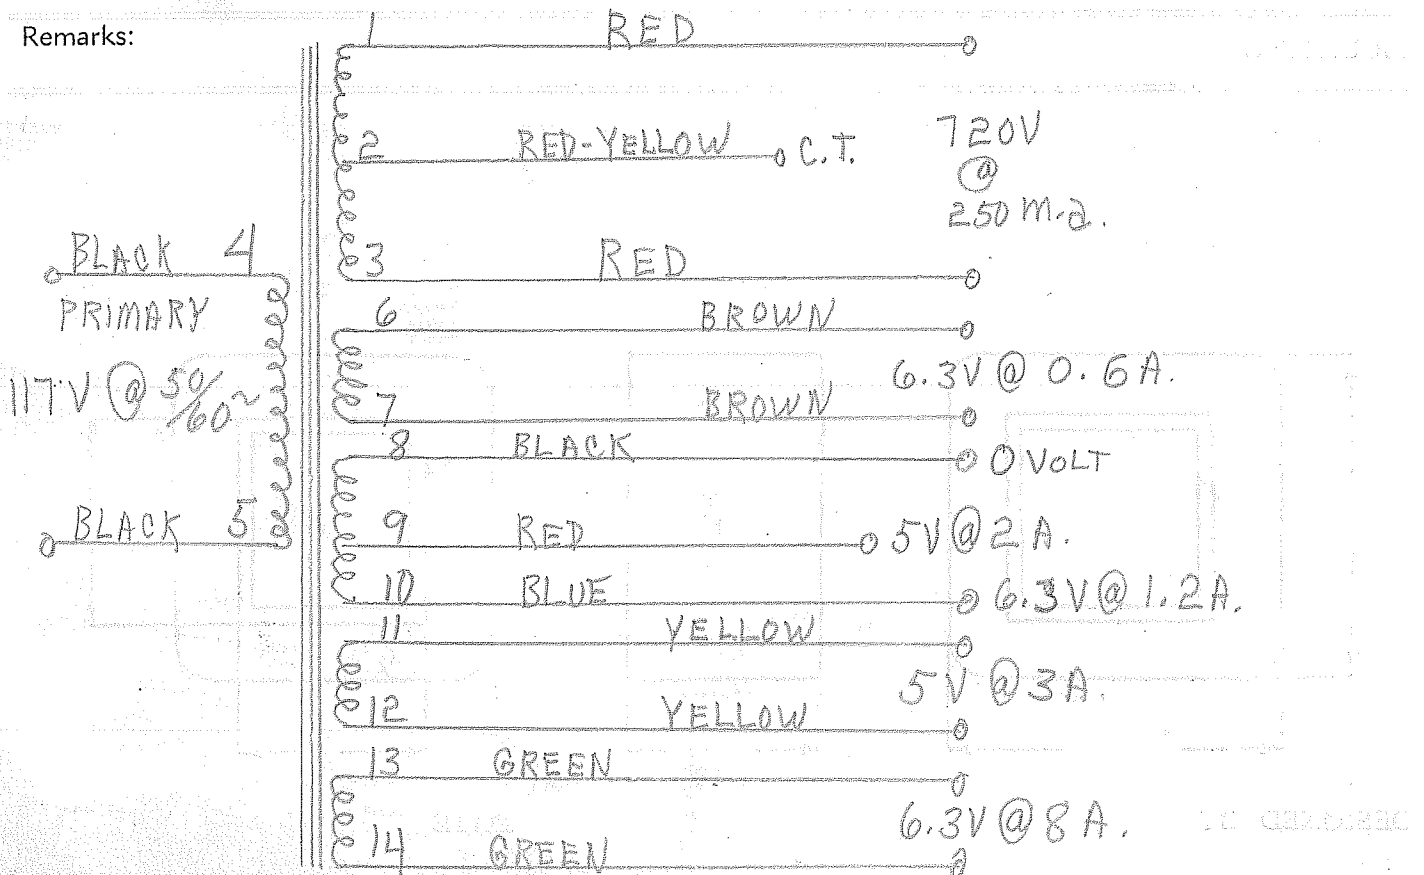 Remarks:
1 RED
2 RED-YELLOW C.T.
720V
@
250 m.a.
3 RED
BLACK 4
PRIMARY
117V @ 50/60~
BLACK 5
6 BROWN
6.3V @ 0.6A.
7 BROWN
8 BLACK 0 VOLT
9 RED 5V @ 2 A.
10 BLUE 6.3V @ 1.2A.
11 YELLOW
5V @ 3A.
12 YELLOW
13 GREEN
6.3V @ 8A.
14 GREEN